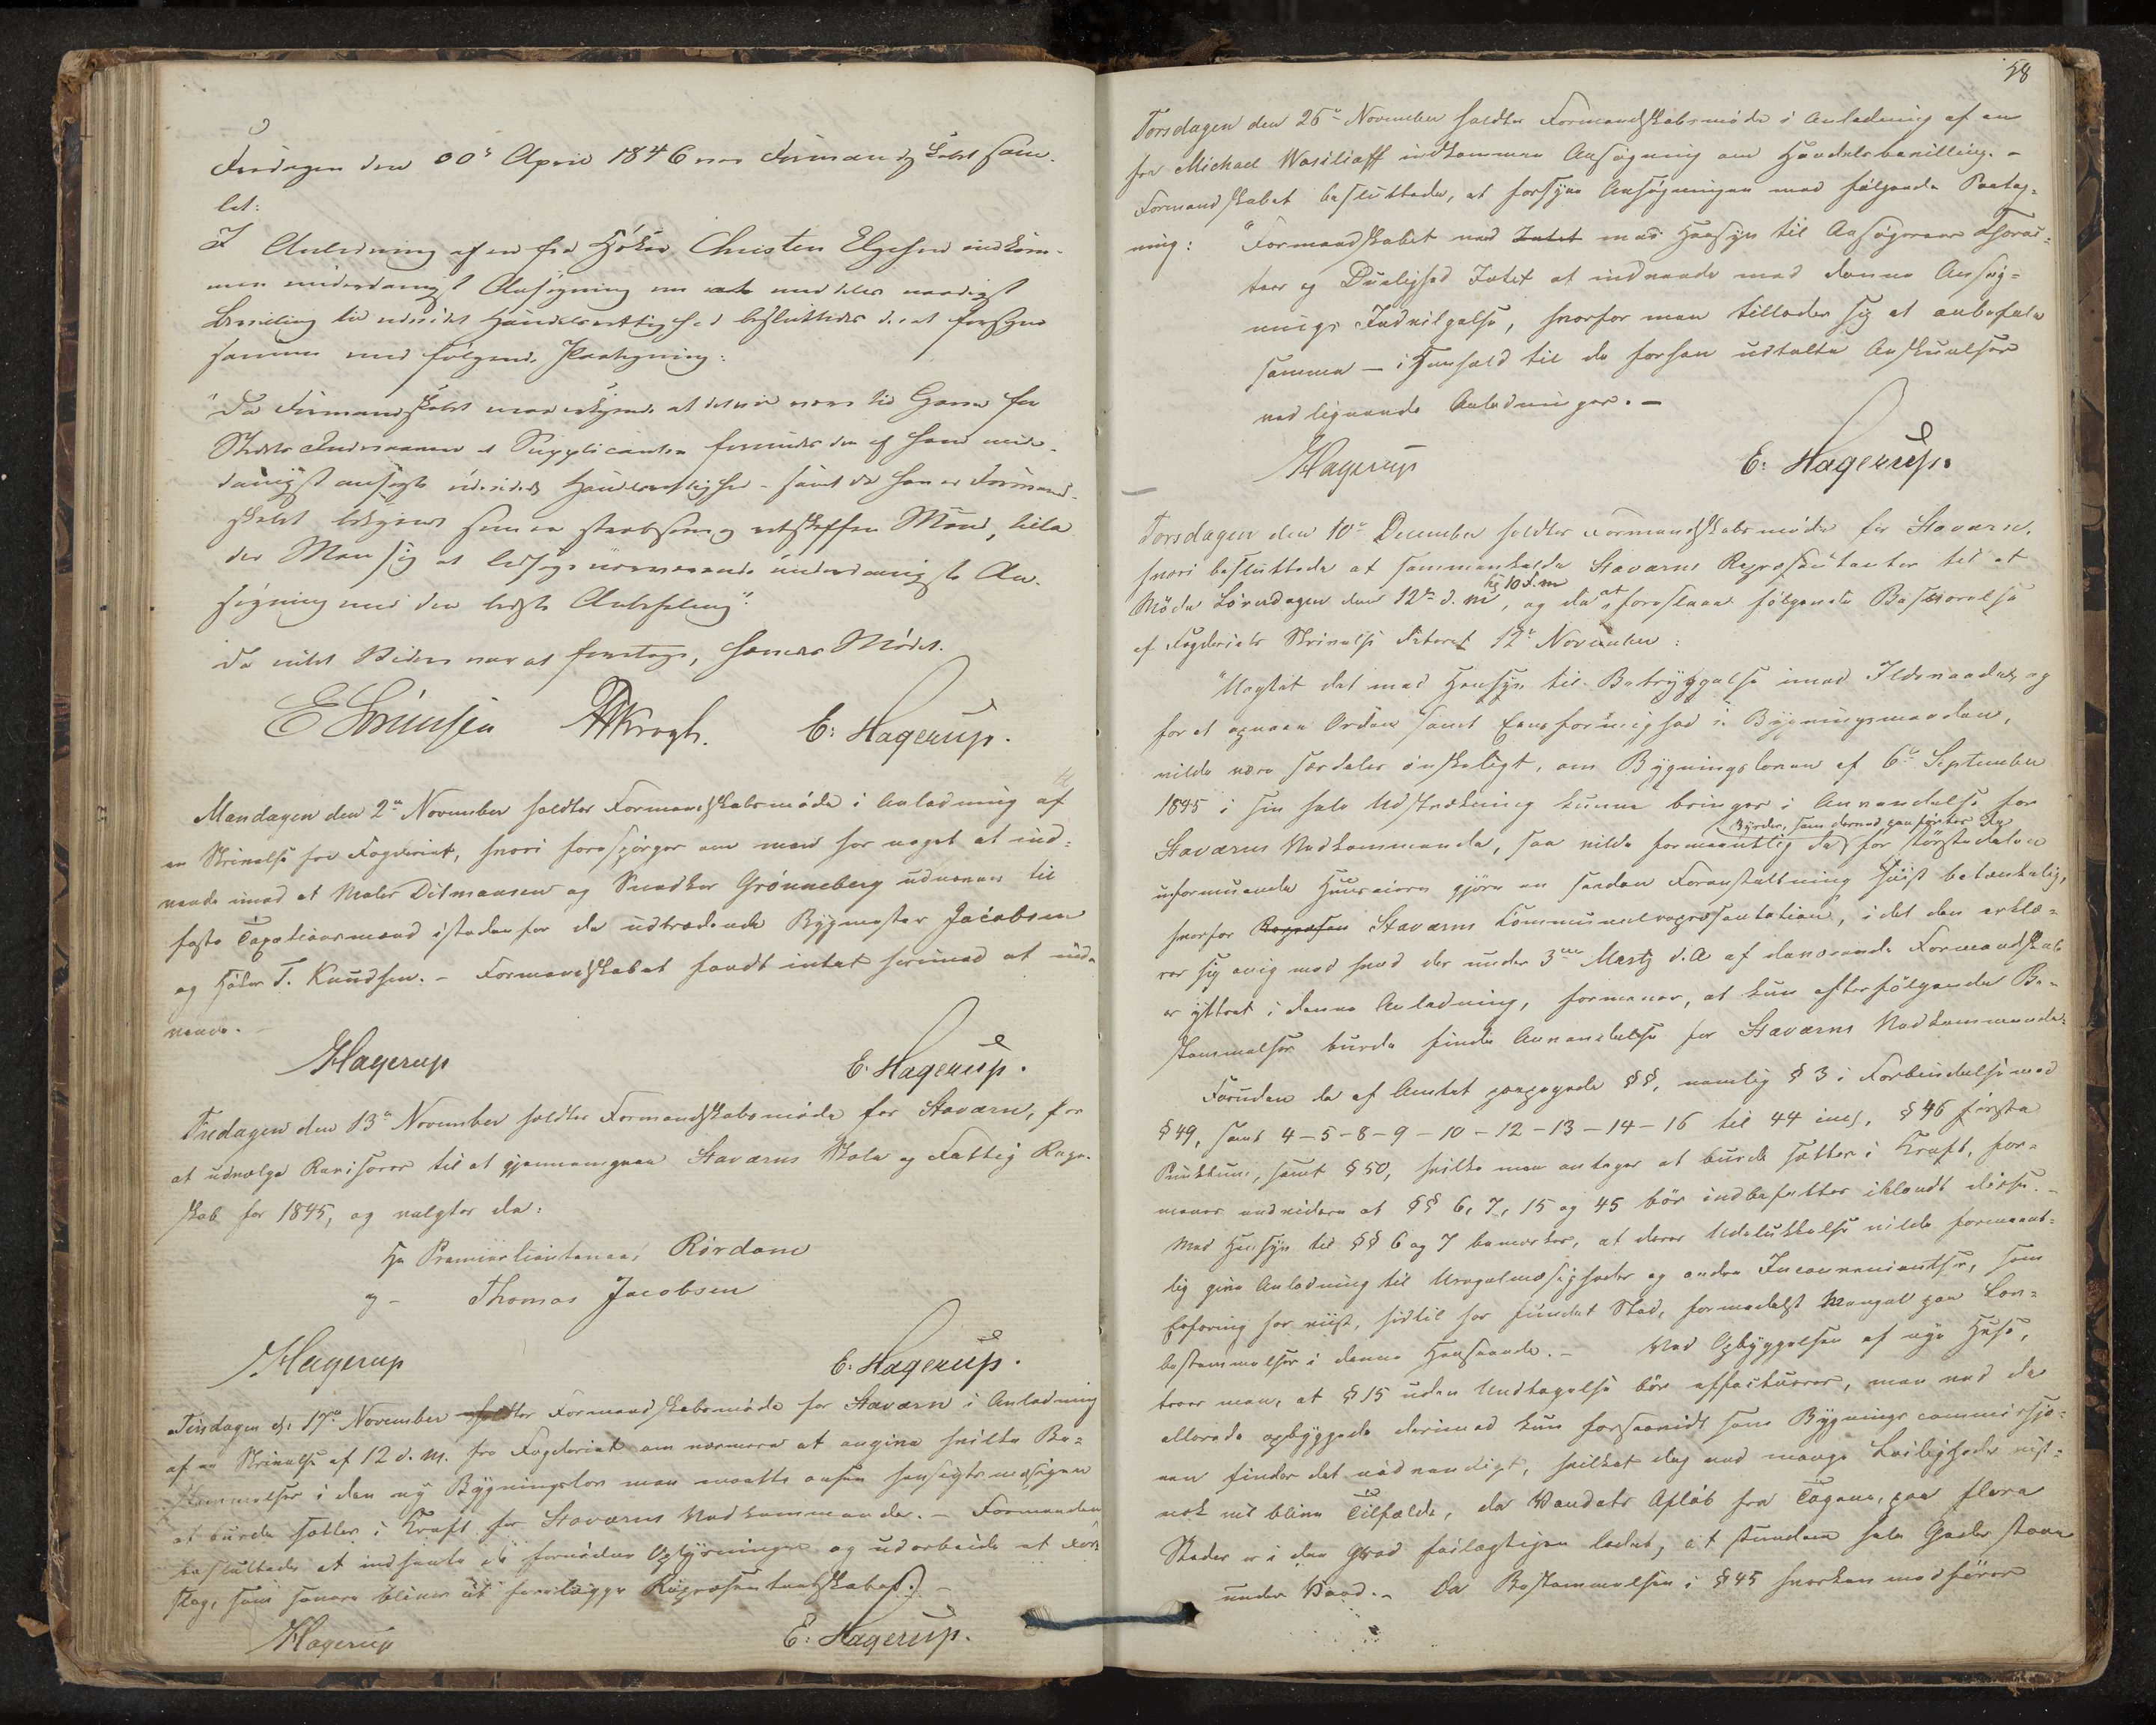 Fredagen den 00de April 1846 var Formandskabet sam-
let:
I Anledning af en fra Høker Christen Elgesen indkom-
men underdanigst Ansøgning om at meddeles naadigst
Bevilling til udvidet Handelsrettighed besluttedes det at forsyne
samme med følgende Paategning:
"Da Formandskabet maa erkjende at det vil være til Gavn for
Stedets Indvaanere at Supplicanten forundes den af ham under-
danigst ansøgte udvidede Handelsrettighed - samt da han er Formand-
skabet bekjendt som en stræbsom og retskaffen Mand, tilla-
der Man sig at ledsage nærværende underdanigste An-
søgning med den bedste Anbefaling".
Da intet Videre var at foretage, hævedes Mødet.
E Sørensen Krogh. E. Hagerup.
Mandagen den 2den November holdtes Formandskabsmøde i Anledning af
en Skrivelse fra Fogderiet, hvori forespørges om man har noget at ind-
vende imod at Maler Ditmansen og Snedker Grønneberg udnævnes til
faste Taxationsmænd istedenfor de udtrædende Bygmester Jacobsen
og Høker T. Knudsen. - Formandskabet fandt intet herimod at ind-
vende. -
Hagerup E. Hagerup.
Fredagen den 13de November holdtes Formandskabsmøde for Staværn, for
at udvælge Revisorer til at gjennemgaae Staværns Skole og Fattig Regn-
skab for 1845, og valgtes da:
Hr Premierlieutenant Rørdam
og - Thomas Jacobsen
Hagerup E. Hagerup.
Tirsdagen d. 17de November holdtes Formandskabsmøde for Staværn i Anledning
af en Skrivelse af 12 d. M. fra Fogderiet om nærmere at angive hvilke Be-
stemmelser i den ny Bygningslov man maatte ansee hensigtsmæssigen
at burde sættes i Kraft for Staværns Vedkommende. - Formanden
besluttede at indhente de fornødne Oplysninger og udarbeide et For-
slag, som senere bliver at forelægge Repræsentantskabet. -
Hagerup E. Hagerup.
58
Torsdagen den 26de November holdtes Formandskabsmøde i Anledning af en
fra Michael Wasiliaff indkommen Ansøgning om Handelsbevilling. -
Formandskabet besluttede, at forsyne Ansøgningen med følgende Paateg-
ning: "Formandskabet ved Intet med Hensyn til Ansøgerens Charac-
teer og Duelighed Intet at indvende mod denne Ansøg-
nings Indvilgelse, hvorfor man tillader sig at anbefale
samme - i Henhold til de forhen udtalte Anskuelser
ved lignende Anledninger. -
Hagerup E. Hagerup.
Torsdagen den 10de December holdtes Formandskabsmøde for Staværn,
hvori besluttede at sammenkalde Staværns Repræsentanter til at
Møde Løverdagen den 12te d. M Kl 10 F. m, og da at foreslaae følgende Besvarelse
af Fogderiets Skrivelse dateret 12te November:
"Uagtet det med Hensyn til Betryggelse imod Ildsvaade og
for at opnaae Orden samt Eensformighed i Bygningsmaaden,
vilde være særdeles ønskeligt, om Bygningsloven af 6te September
1845 i sin hele Udstrækning kunne bringes i Anvendelse for
Staværns Vedkommende, saa vilde formeentlig de Byrder, som derved paaføres de for størstedelen
uformuende Huuseiere gjøre en saadan Foranstaltning høist betænkelig,
hvorfor Repræsen Staværns Communalrepræsentation, i det den erklæ-
rer sig enig med hvad der under 3die Martz d. A af daværende Formandskab
er yttret i denne Anledning, formener, at kun efterfølgende Be-
stemmelser burde finde Anvendelse for Staværns Vedkommende:
Foruden de af Amtet paapegede §§, nemlig § 3 i Forbindelse med
§ 49, samt 4-5-8-9-10-12-13-14-16 til 44 incl, § 46 første
Punktum, samt § 50, hvilke man antager at burde sættes i Kraft, for-
menes endvidere at §§ 6, 7, 15 og 45 bør indbefattes iblandt disse. -
Med Hensyn til §§ 6 og 7 bemærkes, at deres Udelukkelse vilde formeent-
lig give Anledning til Uregelmæssigheder og andre Inconvenientser, som
Erfaring har viist, hidtil har fundet Sted, formedelst Mangel paa Lov-
bestemmelser i denne Henseende. - Ved Opbyggelsen af nye Huse,
troer man, at § 15 uden Undtagelse bør effectueres, men ved de
allerede opbyggede derimod kun forsaavidt som Bygningscommissio-
nen finder det nødvendigt, hvilket dog ved mange Leiligheder vist-
nok vil blive Tilfælde, da Vandets Afløb fra Tagene, paa flere
Steder er i den Grad feilagtigen ledet, at stundom hele Gader staae
under Vand. - Da Bestemmelsen i § 45 hverken medfører